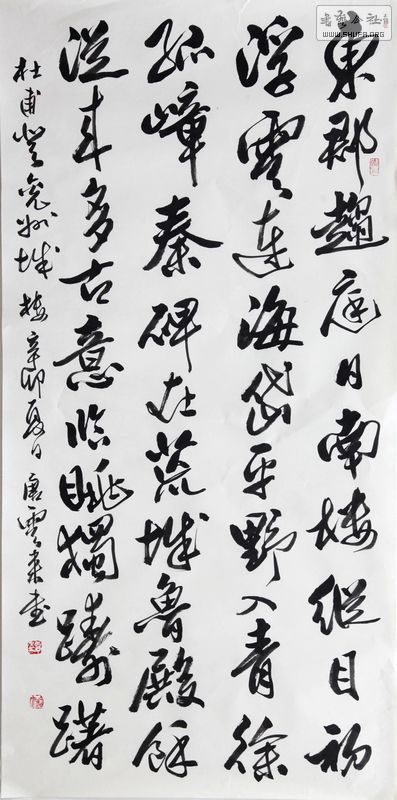 東郡趨庭日南樓縱目初
浮雲連海岱平野入青徐
孤嶂秦碑在荒城魯殿餘
從来多古意臨眺獨躊躇
杜甫登兖州城樓 辛卯夏日 唐雲来書
書藝公社
WWW.SHUFA.ORG